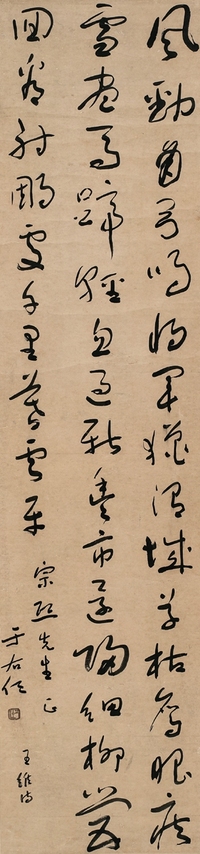 風勁角弓鳴將軍獵渭城草枯鷹眼疾
雪盡馬蹄輕忽過新豐市還歸細柳營
回看射鵰處千里暮雲平
王維詩
宗熙先生正
于右任